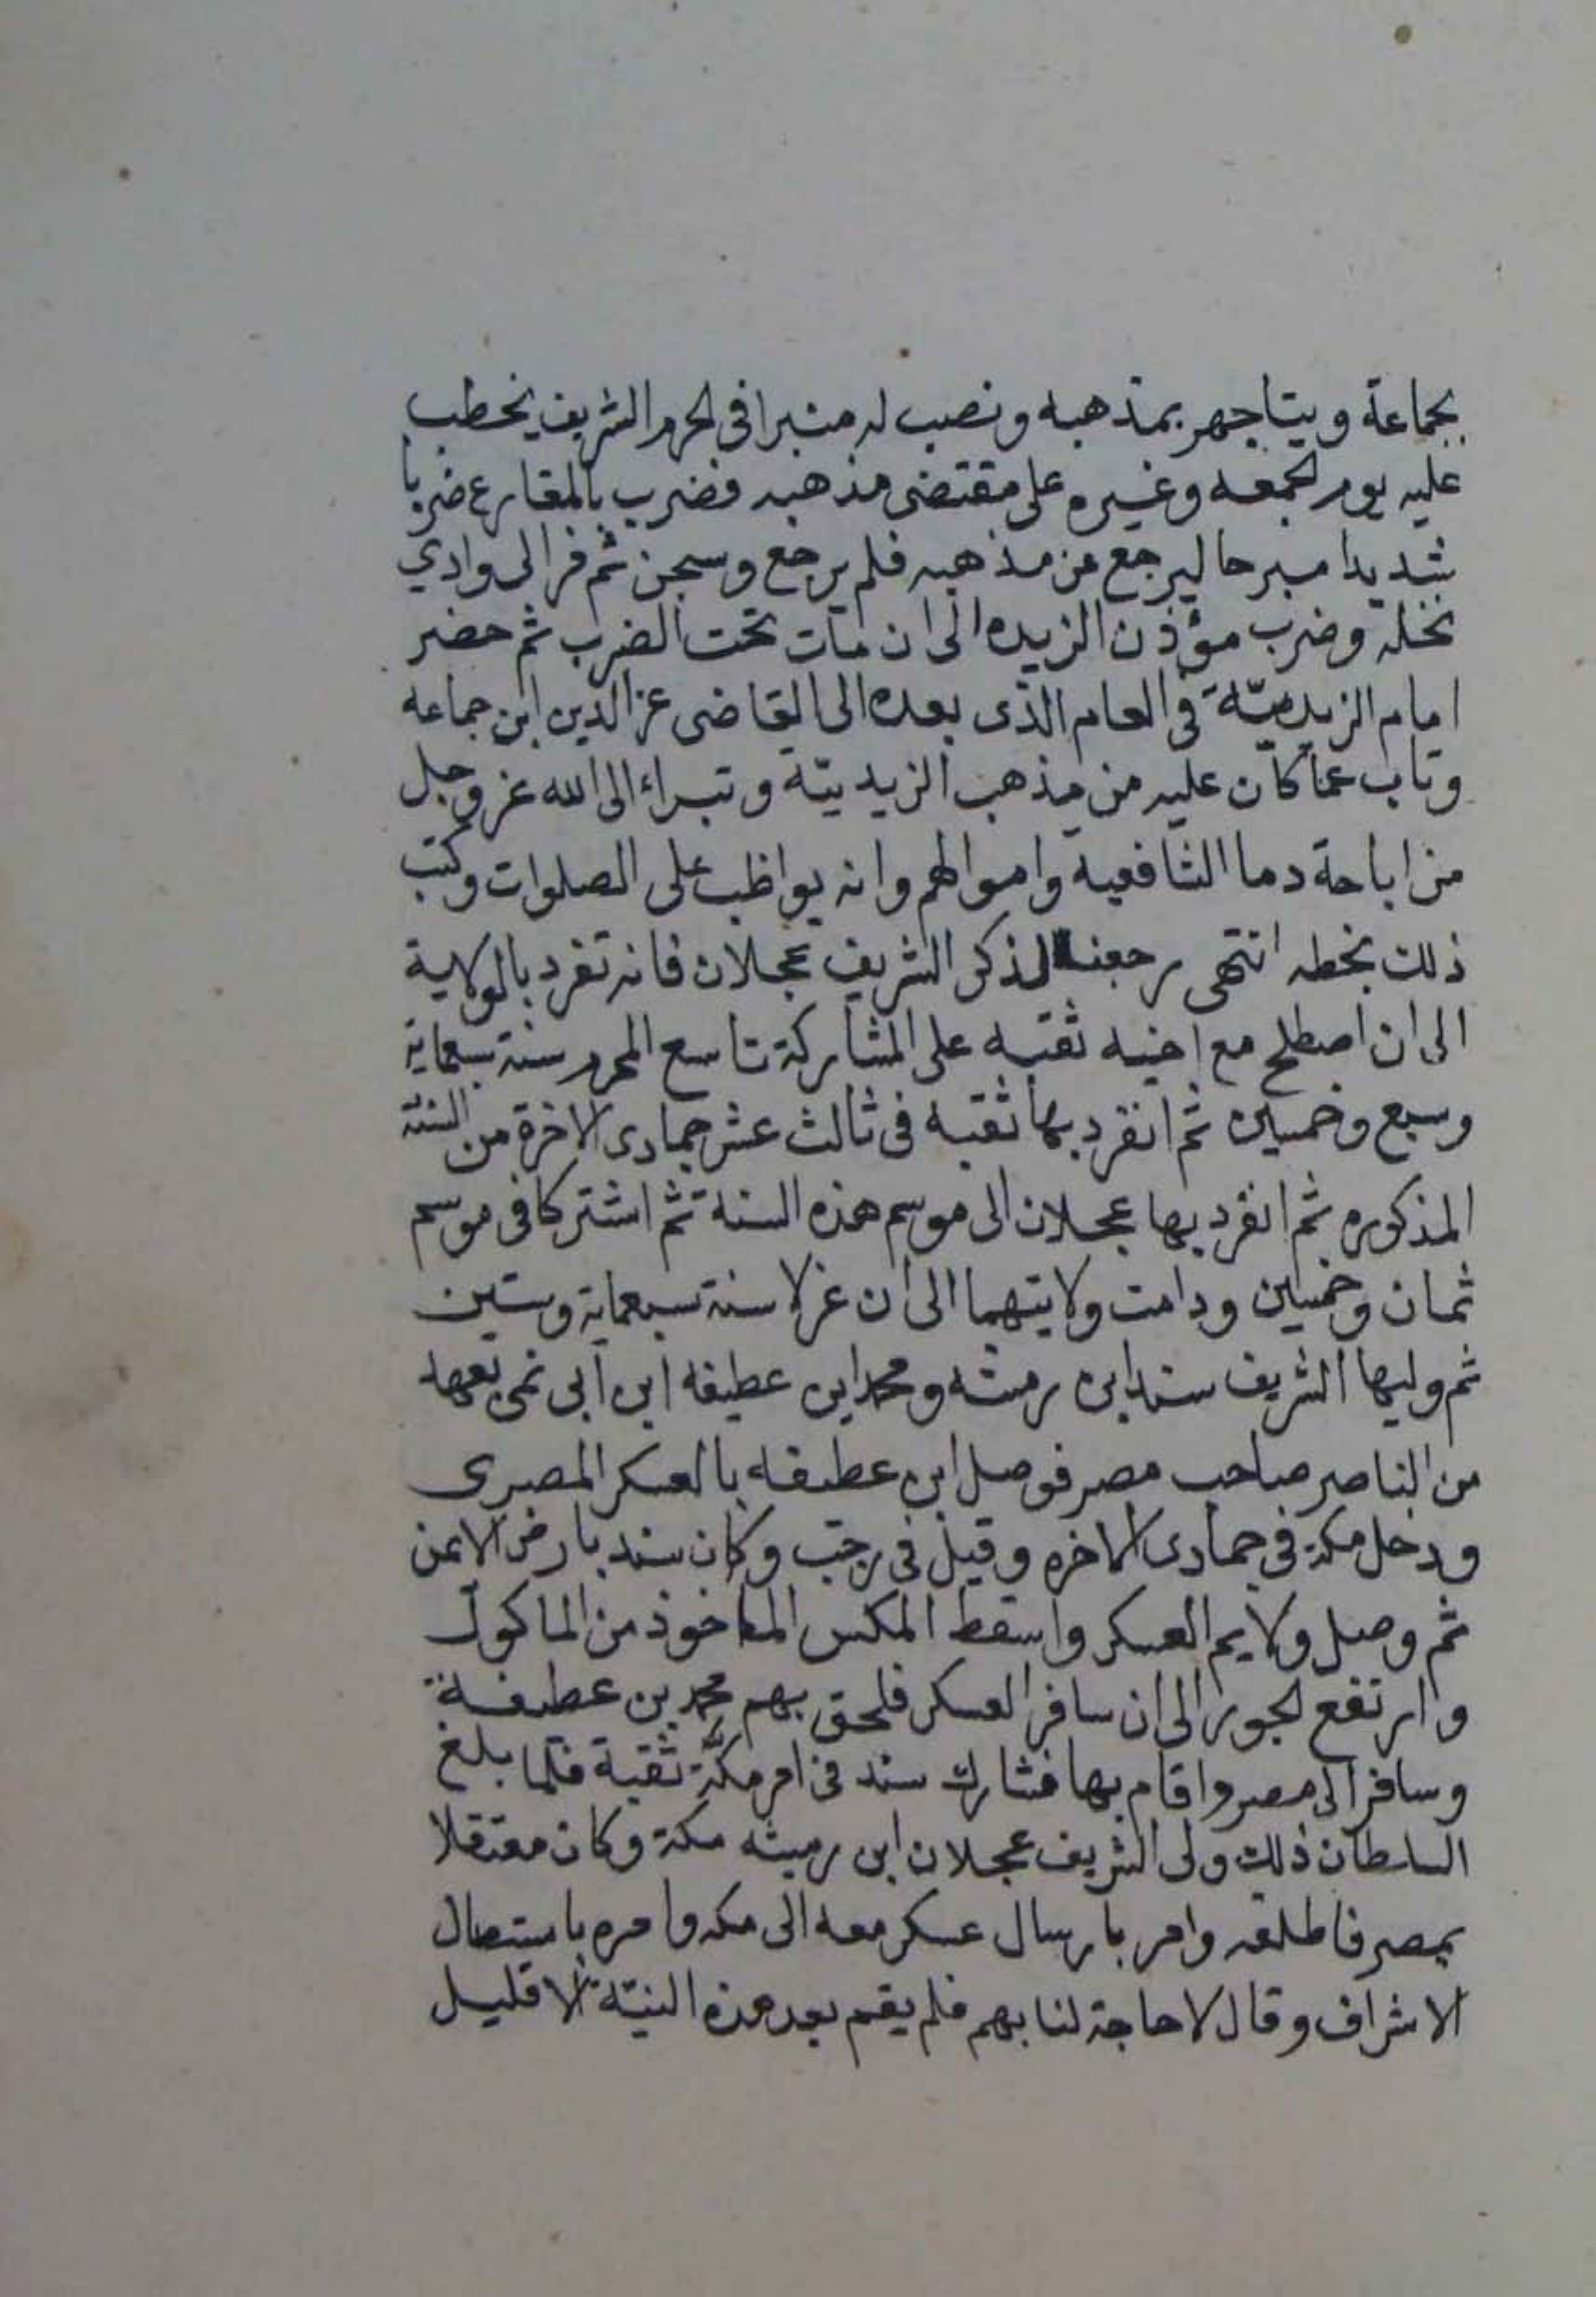 بجماعة ويتاجهر بمذهبه ونصب له منبرا فى الحرم الشريف يخطب
عليه يوم الجمعه وغيره على مقتضى مذهبه فضرب بالمقارع ضربا
شديدا مبرحا ليرجع من مذهبه فلم يرجع وسجن ثم فر الى وادي
نخله وضرب مؤذن الزيده الى ان مات تحت الضرب ثم حضر
امام الزيديّة فى العام الذى بعده الى القاضى عز الدين ابن جماعه
وتاب عما كان عليه من مذهب الزيديّة وتبراء الى الله عز وجل
من اباحة دما الشافعية واموالهم وانه يواظب على الصلوات وكتب
ذلك بخطه انتهى رجعنا لذكر الشريف عجلان فانه تفرد بالولاية
الى ان اصطلح مع اخيه ثقبه على المشاركة تاسع المحرم سنة سبعماية
وسبع وخمسين ثم انفرد بها ثقبه فى ثالث عشر جمادى الاخرة من السنة
المذكوره ثم انفرد بها عجلان الى موسم هذه السنة ثم اشتركا فى موسم
ثمان وخمسين ودامت ولايتهما الى ان عزلا سنة سبعماية وستين
ثم وليها الشريف سند ابن رميثه ومحمد ابن عطيفه ابن ابى نمى بعهد
من الناصر صاحب مصر فوصل ابن عطيفه بالعسكر المصرى
ودخل مكة فى جمادى الاخره وقيل فى رجب وكان سند بارض اليمن
ثم وصل ولايم العسكر واسقط المكس الماخوذ من الماكول
وارتفع الجور الى ان سافر العسكر فلحق بهم محمد بن عطيفة
وسافر الى مصر واقام بها فشارك سند فى امر مكّة ثقبة فلما بلغ
السلطان ذلك ولى الشريف عجلان ابن رميثه مكة وكان معتقلا
بمصر فاطلقه وامر بارسال عسكر معه الى مكه وامره باستصال
الاشراف وقال لا حاجة لنا بهم فلم يقم بعد هذه النيّة الا قليل